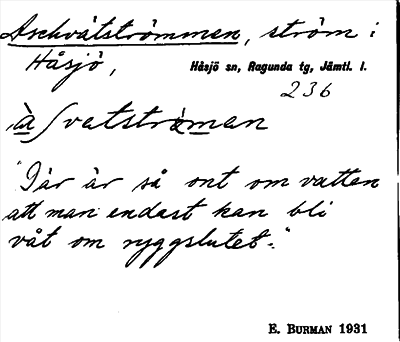 Aschvåtströmmen, ström i
Håsjö,
Håsjö sn, Ragunda tg, Jämtl. l.
236
"Där är så ont om vatten
att man endast kan bli
våt om ryggslutet."
E. BURMAN 1931